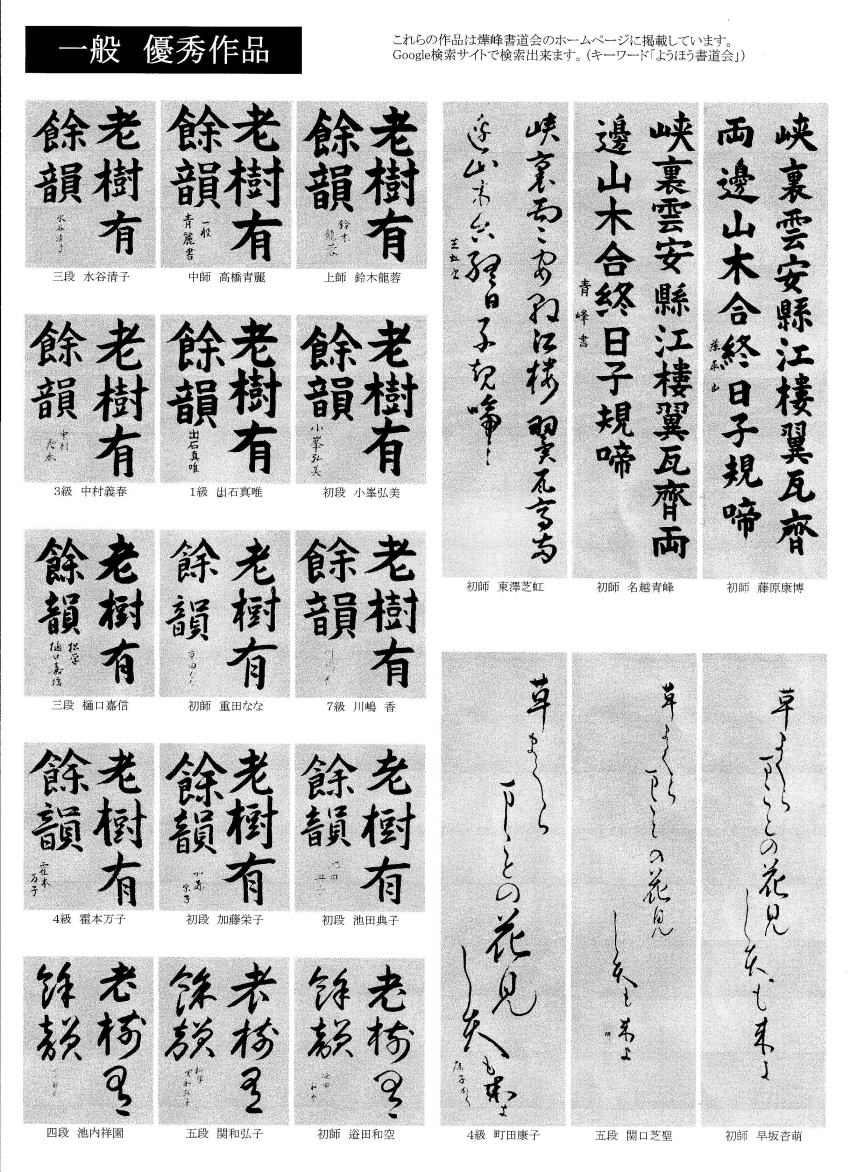 一般 優秀作品
これらの作品は燁峰書道会のホームページに掲載しています。
Google検索サイトで検索出来ます。(キーワード「ようほう書道会」)
老樹有
餘韻
水谷清子
三段 水谷清子
老樹有
餘韻
一般
青麗書
中師 高橋青麗
老樹有
餘韻
鈴木
龍蓉
上師 鈴木龍蓉
老樹有
餘韻
中村
3級 中村義春
老樹有
餘韻
出石真唯
1級 出石真唯
老樹有
餘韻
小峯弘美
初段 小峯弘美
老樹有
餘韻
松学
樋口嘉信
三段 樋口嘉信
老樹有
餘韻
重田なな
初師 重田なな
老樹有
餘韻
7級 川嶋 香
老樹有
餘韻
霍本
万子
4級 霍本万子
老樹有
餘韻
加藤
栄子
初段 加藤栄子
老樹有
餘韻
池田
初段 池田典子
老樹有
餘韻
四段 池内祥園
老樹有
餘韻
五段 関和弘子
老樹有
餘韻
初師 遊田和空
峡裏雲安縣江樓翼瓦齊
両邊山木合終日子規啼
藤原
初師 藤原康博
峡裏雲安縣江樓翼瓦齊両
邊山木合終日子規啼
青峰書
初師 名越青峰
峡裏雲安縣江樓翼瓦齊両
邊山木合終日子規啼
初師 東澤芝虹
草まくら
まことの花見
しても来よ
初師 早坂杏萌
草まくら
まことの花見
しても来よ
五段 関口芝聖
草まくら
まことの花見
しても来よ
康子かく
4級 町田康子